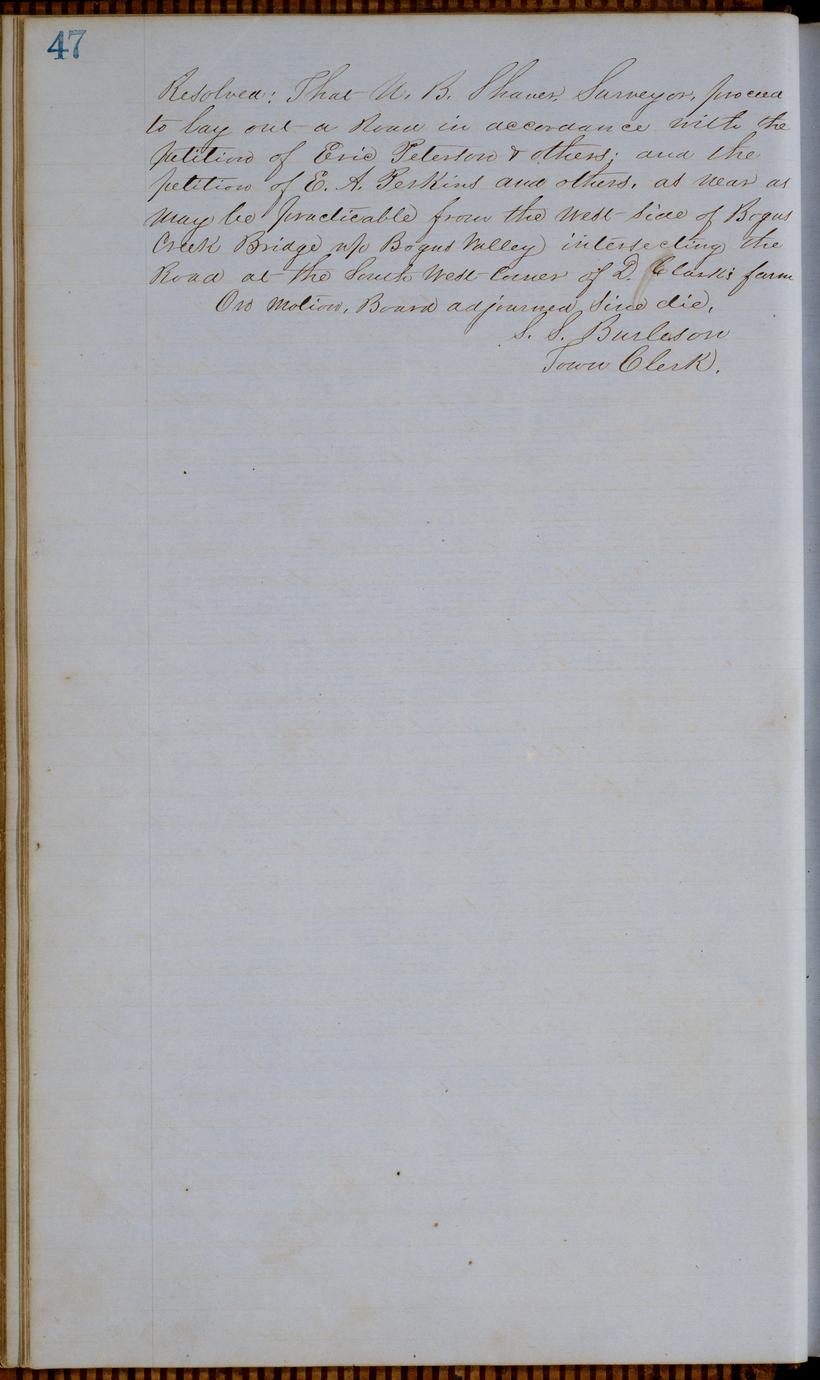 47
Resolved: That U. B. Shaver, Surveyor, proceed
to lay out a Road in accordance with the
petition of Eric Peterson & others; and the
petition of E. A. Perkins and others, as near as
may be practicable from the West side of Bogus
Creek Bridge up Bogus Valley intersecting the
Road at the South West Corner of D. Clark's farm
On motion, Board adjourned Sine die,
S. S. Burleson
Town Clerk.